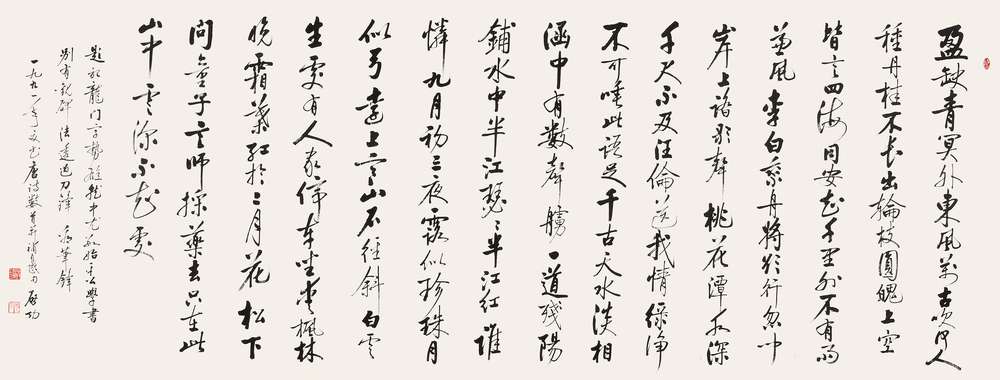 盈缺青冥外東風萬古吹何人
種丹桂不長出輪枝圓魄上空
皆言四海同安知千里外不有雨
兼風李白乘舟將欲行忽聞
岸上踏歌聲桃花潭水深
千尺不及汪倫送我情綠淨
不可唾此語足千古天水淡相
涵中有數聲艣一道殘陽
鋪水中半江瑟瑟半江紅誰
憐九月初三夜露似珍珠月
似弓遠上寒山石徑斜白雲
生處有人家停車坐愛楓林
晚霜葉紅於二月花松下
問童子言師採藥去只在此
山中雲深不知處
題記龍門字勢雄就中尤數始平公學書
別有觀碑法透過刀鋒看筆鋒
一九九一年夏書唐詩數首并 啟功